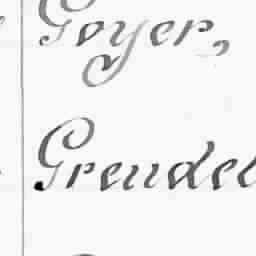 Goyer,
Grendel